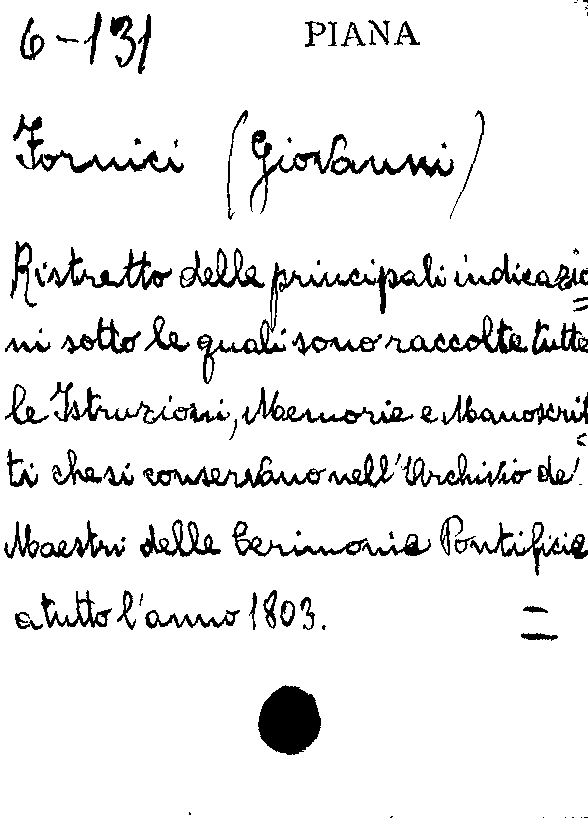 6-131 PIANA
Fornici (Giovanni)
Ristretto delle principali indicazio=
ni sotto le quali sono raccolte tutte
le Istruzioni, Memorie e Manoscrit=
ti che si conservano nell'Archivio de'
Maestri delle Cerimonie Pontificie
a tutto l'anno 1803. =